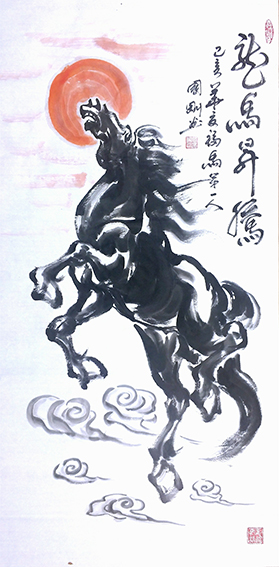 龍馬昇騰
己亥華夏福馬第一人
國剛